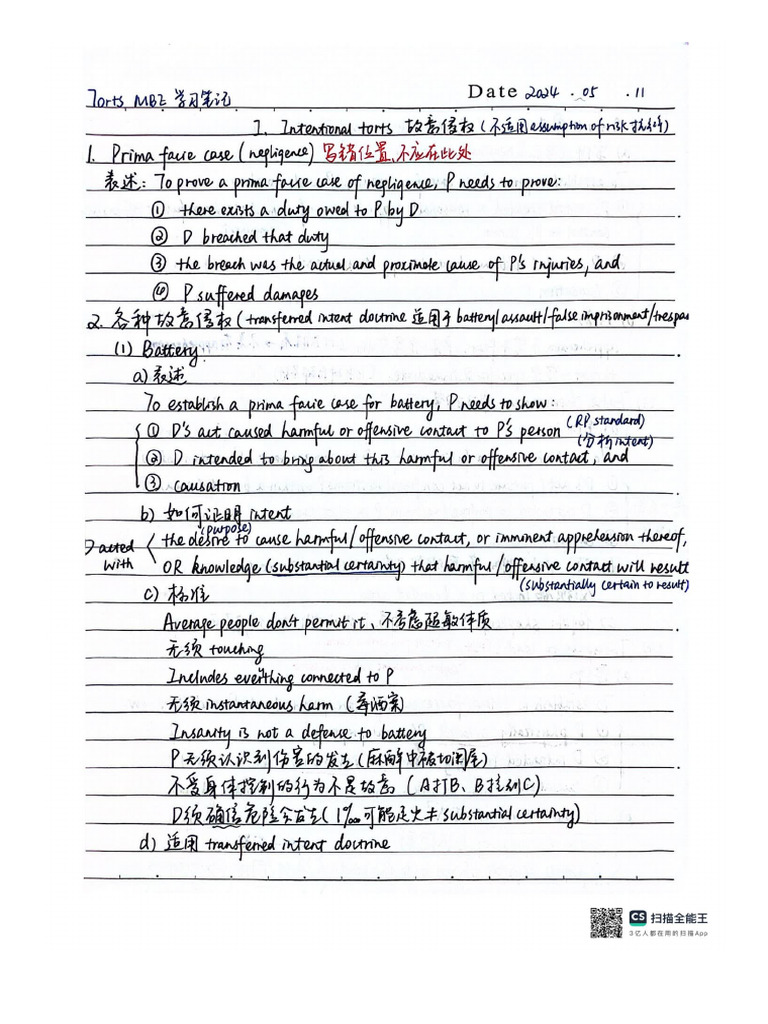 Torts MBE 学习笔记
Date 2024 . 05 . 11
I. Intentional torts 故意侵权 (不适用 assumption of risk 抗辩)
1. Prima facie case (negligence) 写错位置、不应在此处
表述: To prove a prima facie case of negligence, P needs to prove:
① there exists a duty owed to P by D
② D breached that duty
③ the breach was the actual and proximate cause of P's injuries, and
④ P suffered damages
2. 各种故意侵权 (transferred intent doctrine 适用于 battery/assault/false imprisonment/trespas
(1) Battery
a) 表述
To establish a prima facie case for battery, P needs to show:
① D's act caused harmful or offensive contact to P's person (RP standard)
(分析intent)
② D intended to bring about this harmful or offensive contact, and
③ causation
b) 如何证明 intent
(purpose)
D acted with
the desire to cause harmful/offensive contact, or imminent apprehension thereof,
OR knowledge (substantial certainty) that harmful/offensive contact will result
(substantially certain to result)
c) 标准
Average people don't permit it、不考虑超敏体质
无须 touching
Includes everything connected to P
无须 instantaneous harm (毒酒案)
Insanity is not a defense to battery
P无须认识到伤害的发生 (麻醉中被切阑尾)
不受身体控制的行为不是故意 (A打B、B撞到C)
D须确信危险会发生 (1‰可能起火≠substantial certainty)
d) 适用 transferred intent doctrine
CS 扫描全能王
3亿人都在用的扫描App